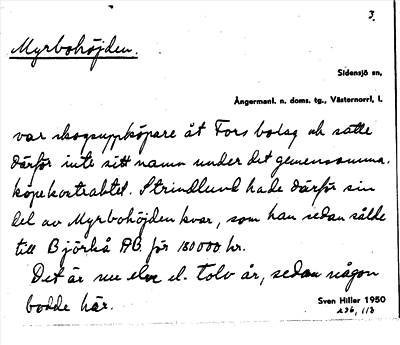 3.
Myrbohöjden.
Sidensjö sn,
Ångermanl. n. doms. tg., Västernorrl. l.
var skogsuppköpare åt Fors bolag och satte
därför inte sitt namn under det gemensamma
köpekontraktet. Strindlund hade därför sin
del av Myrbohöjden kvar, som han sedan sålde
till Björkå AB för 180000 kr.
Det är nu elva el. tolv år, sedan någon
bodde här.
Sven Hiller 1950
236, 113